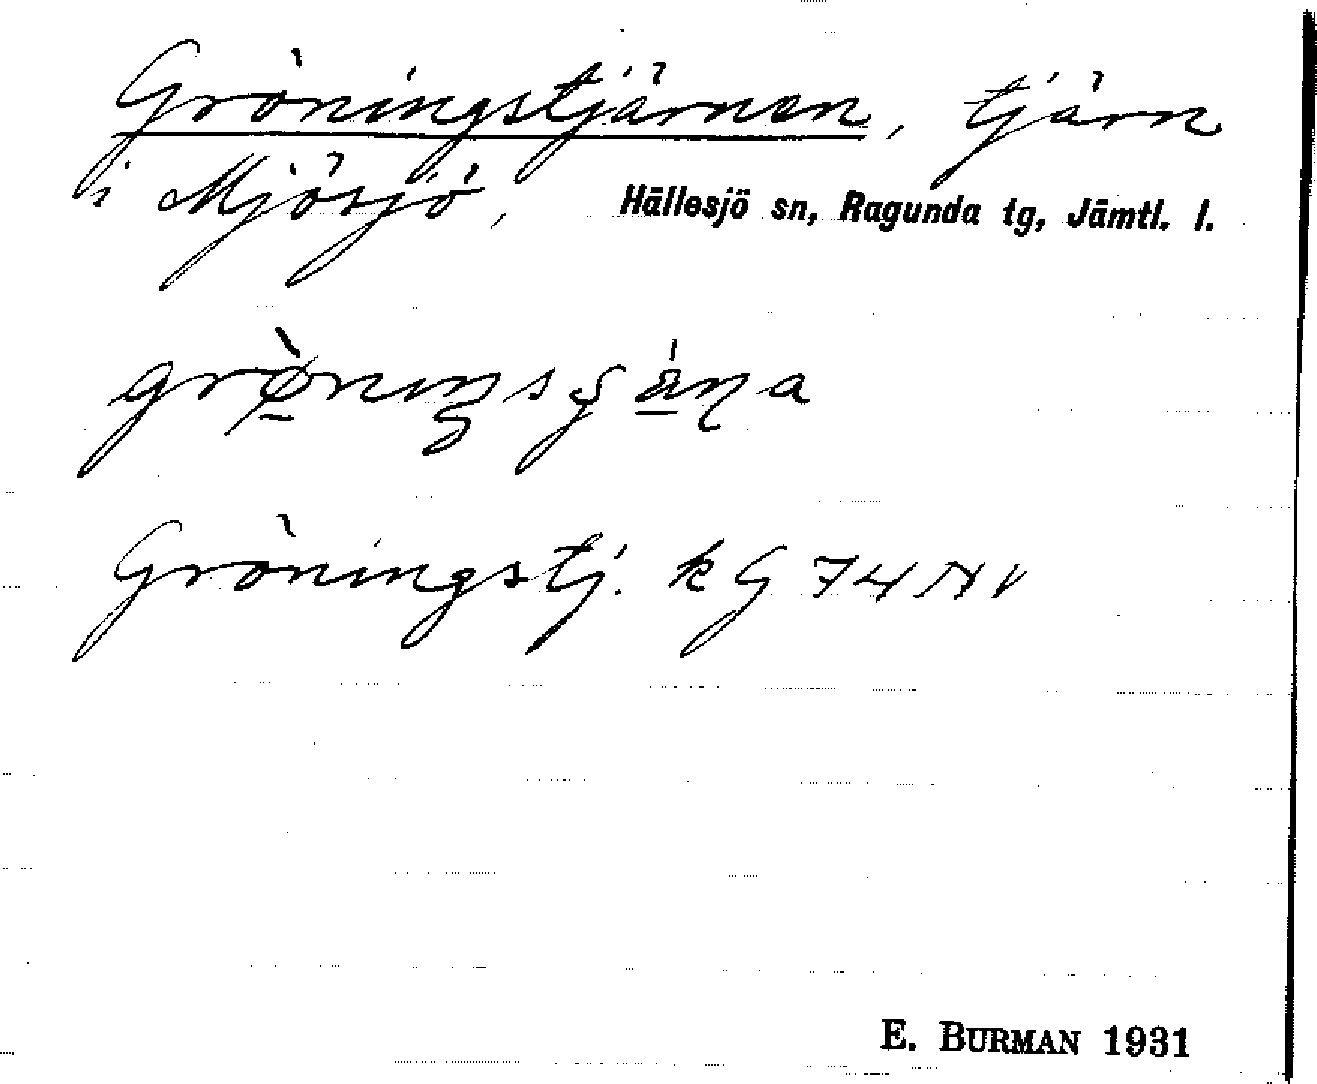 Gröningstjärnen, tjärn
i Mjösjö, Hällesjö sn, Ragunda tg, Jämtl. l.
Gröningstj. kG 74 NV
E. BURMAN 1931